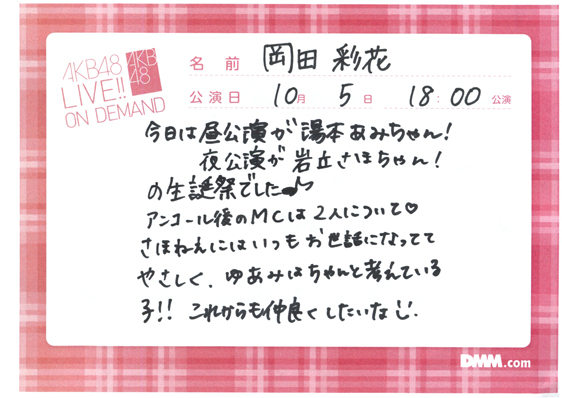 AKB48
LIVE!!
ON DEMAND
AKB
48
名前 岡田 彩花
公演日 10月 5日 18:00 公演
今日は昼公演が湯本あみちゃん!
夜公演が岩立さほちゃん!
の生誕祭でした♪
アンコール後のMCは2人について♡
さほねえにはいつもお世話になってて
やさしく、ゆあみはちゃんと考えている
子!! これからも仲良くしたいな
DMM.com